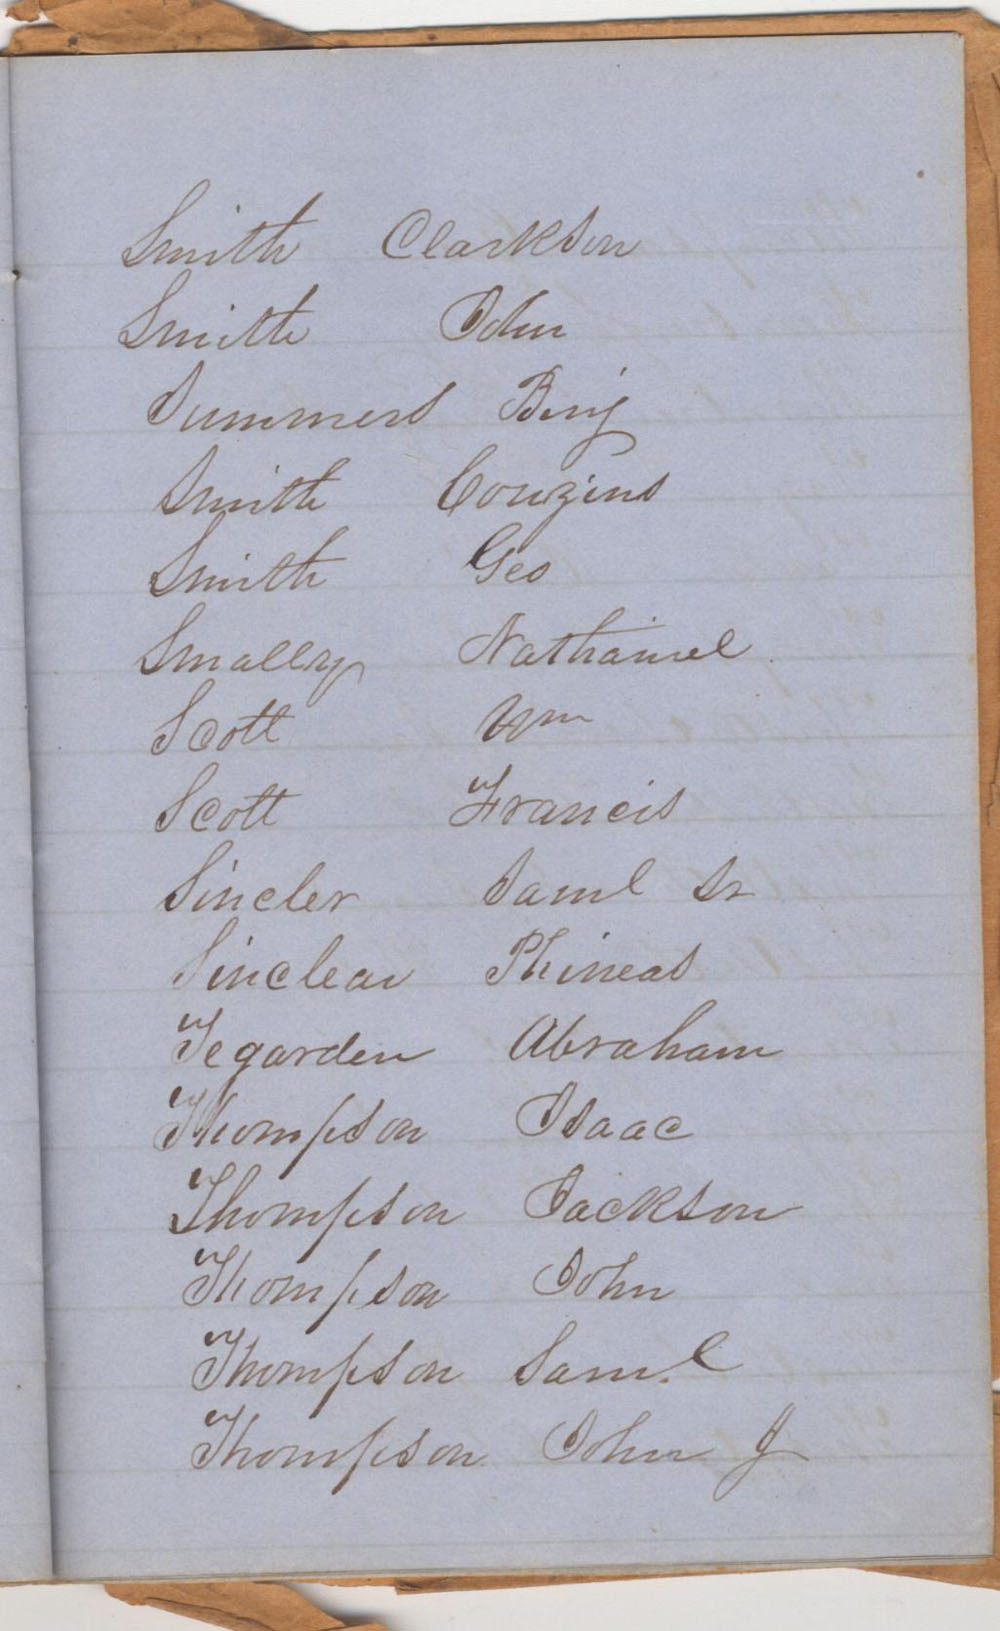 Smith Clarkson
Smith John
Summers Benj
Smith Couzins
Smith Geo
Smalley Nathaniel
Scott Wm
Scott Francis
Sincler Saml Sr
Sinclear Phineas
Tegarden Abraham
Thompson Isaac
Thompson Jackson
Thompson John
Thompson Saml
Thompson John J